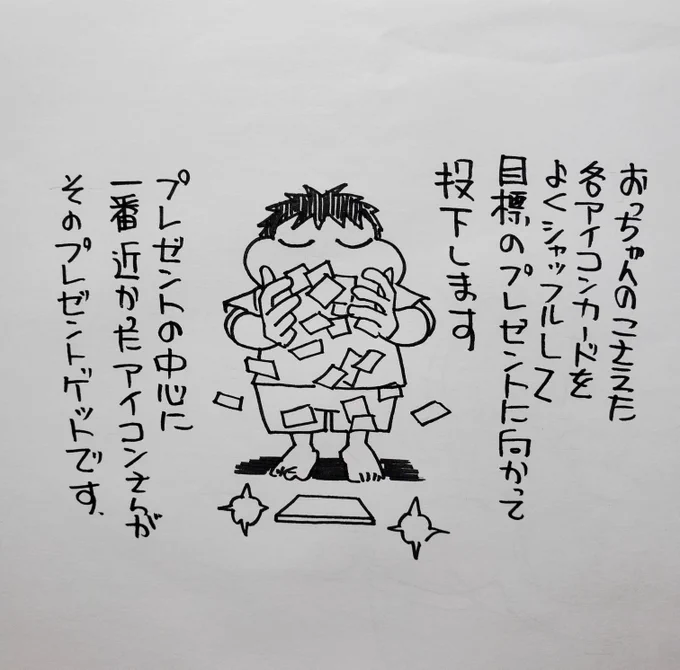 おっちゃんのこさえた
各アイコンカードを
よくシャッフルして
目標のプレゼントに向かって
投下します
プレゼントの中心に
一番近かったアイコンさんが
そのプレゼントゲットです、